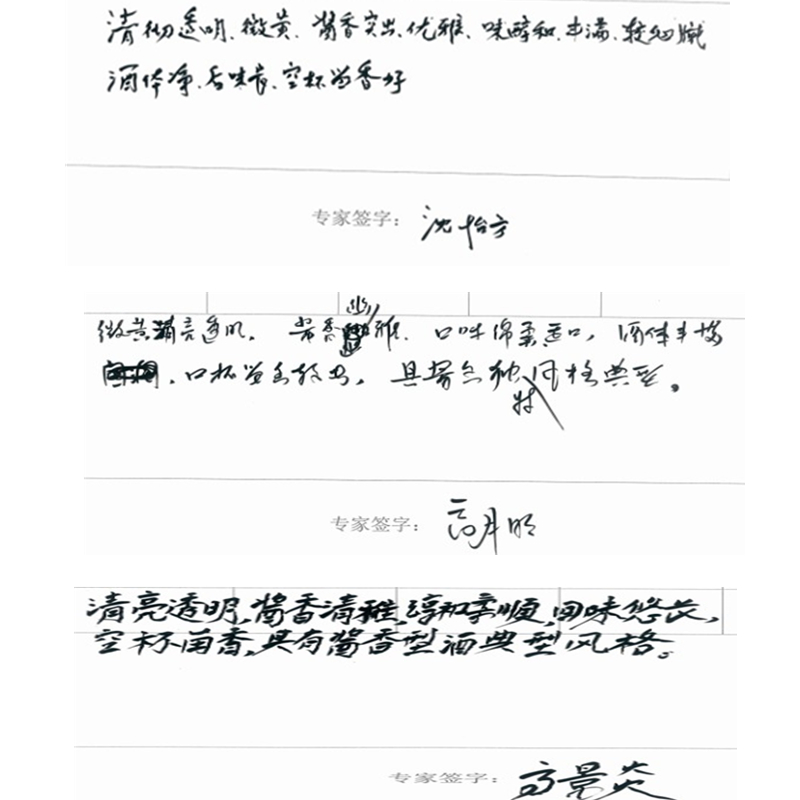 清彻透明、微黄、酱香突出、优雅、味醇和、丰满、较细腻
酒体净、后味长、空杯留香好
专家签字：沈怡方
微黄清亮透明，酱香幽雅，口味绵柔适口，酒体丰满
，口杯留香较好，具酱香独特风格典型。
专家签字：高月明
清亮透明，酱香清雅，醇和柔顺，回味悠长，
空杯留香，具有酱香型酒典型风格。
专家签字：高景炎